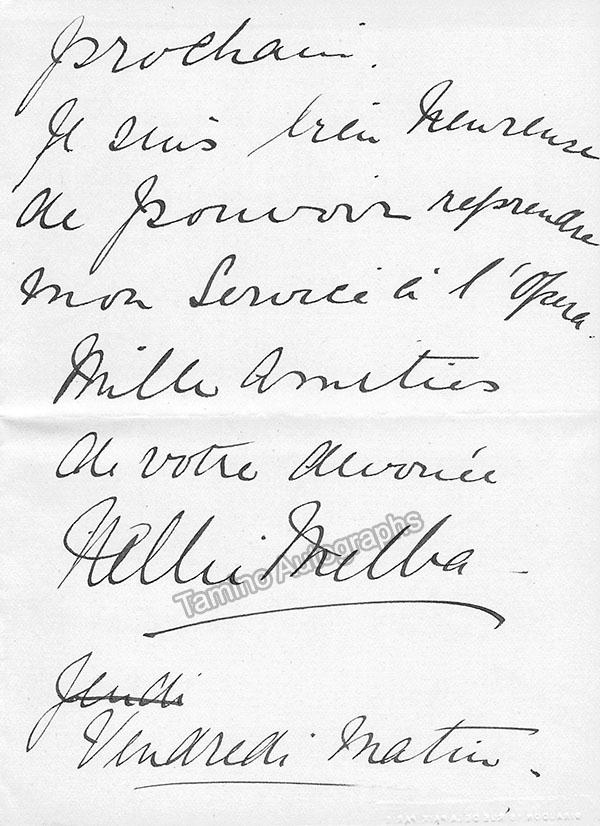 prochain.
Je suis bien heureuse
de pouvoir reprendre
mon Service à l'Opera.
Mille Amitiés
de votre devouée
Nellie Melba
Tamino Autographs
Jeudi
Vendredi Matin.